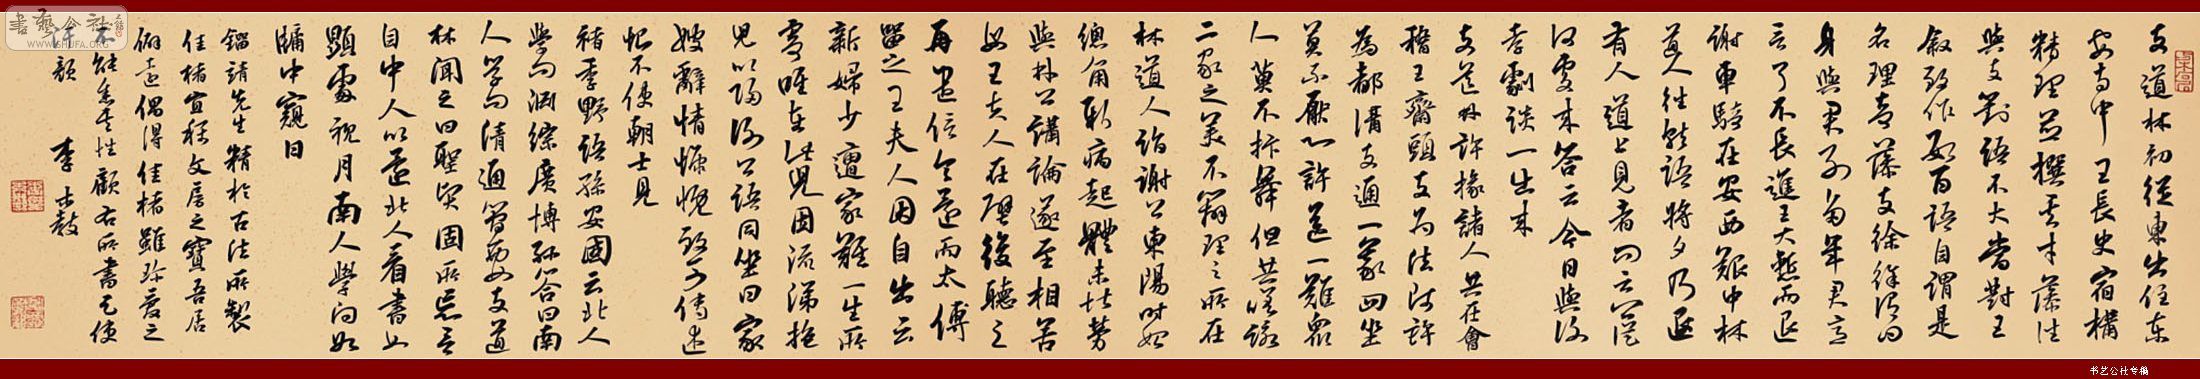 支道林初從東出住東
安寺中王長史宿構
精理並撰其才藻往
與支對語不大當對王
敘致作數百語自謂是
名理奇藻支徐徐謂曰
身與君別多年君義
言了不長進王大慙而退
謝車騎在安西艱中林
道人往就語將夕乃退
有人道上見者問云公從
何處來答云今日與謝
孝劇談一出來
支道林許掾諸人共在會
稽王齋頭支為法師許
為都講支通一義四坐
莫不厭心許送一難眾
人莫不抃舞但共嗟詠
二家之美不辯理之所在
林道人詣謝公東陽時始
總角新病起體未堪勞
與林公講論遂至相苦
母王夫人在壁後聽之
再遣信令還而太傅
留之王夫人因自出云
新婦少遭家難一生所
寄唯在此兒因流涕抱
兒以歸謝公語同坐曰家
嫂辭情慷慨致可傳述
恨不使朝士見
褚季野語孫安國云北人
學問淵綜廣博孫答曰南
人學問清通簡要支道
林聞之曰聖賢固所忘言
自中人以還北人看書如
顯處視月南人學問如
牖中窺日
請先生精於古法所製
佳楮宣稱文房之寶吾居
僻遠偶得佳楮雖珍愛之
不能盡其性顧右所書又使
汗顏
李
書藝公社
WWW.SHUFA.ORG
书艺公社专稿